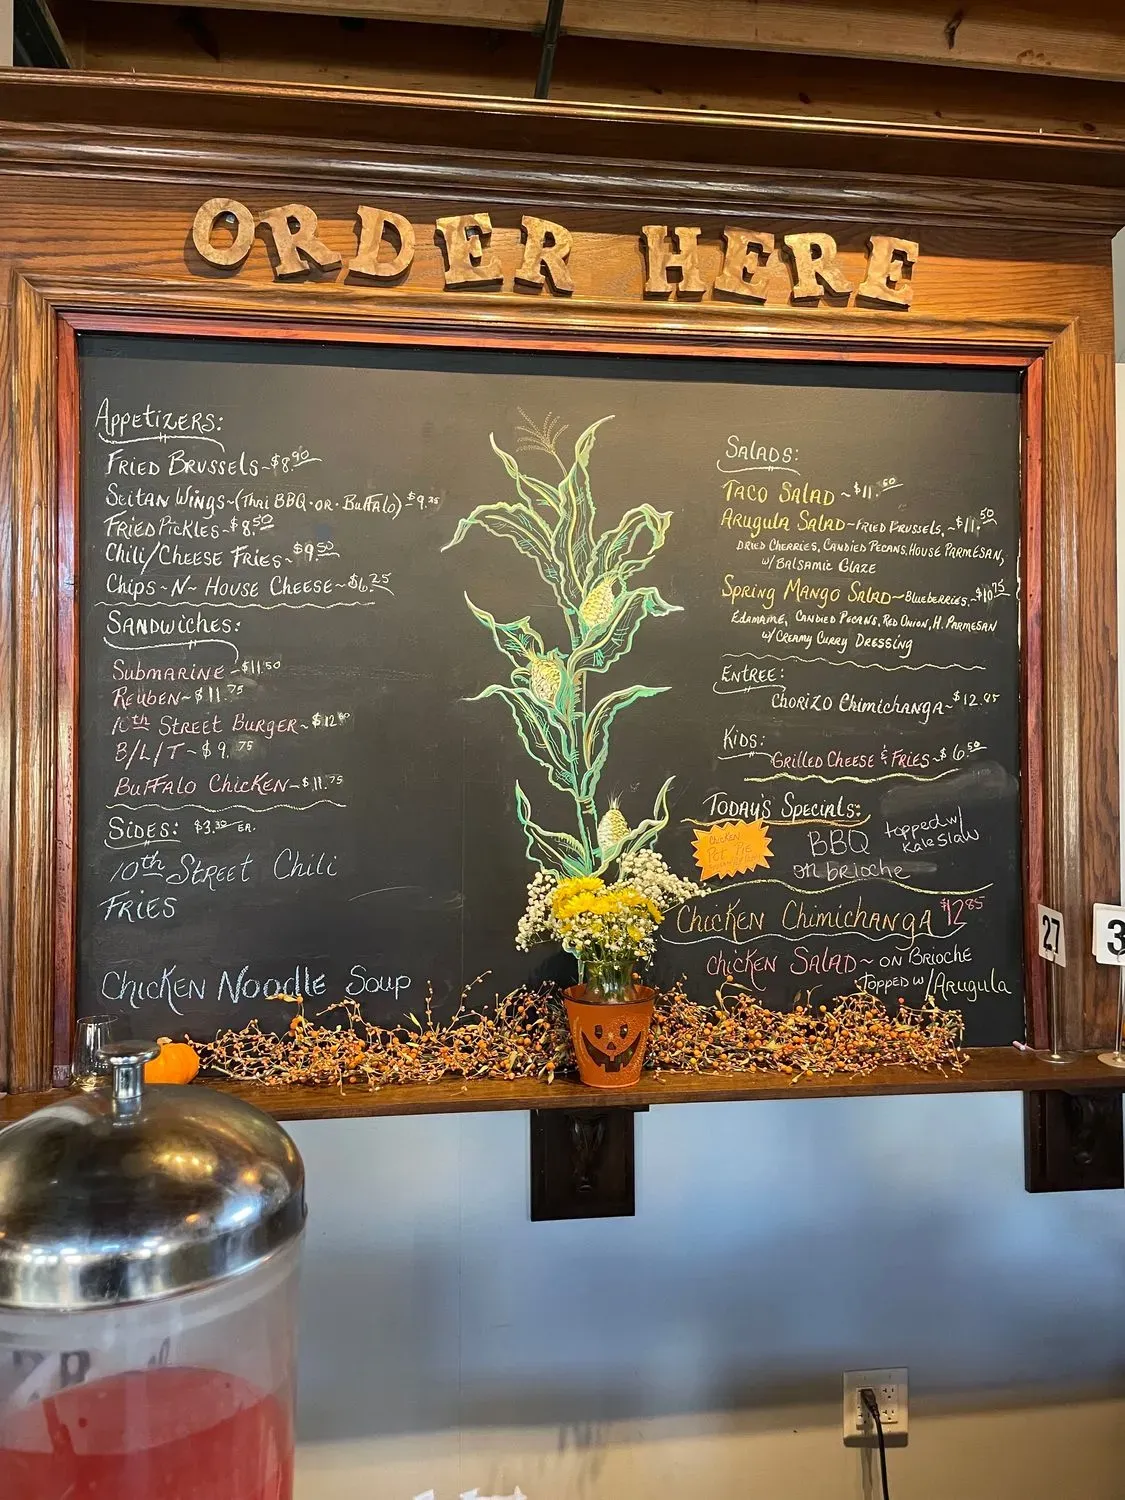 ORDER HERE
APPETIZERS:
FRIED BRUSSELS~$8.90
SEITAN WINGS~(THAI BBQ·OR·BUFFALO)~$9.25
FRIED PICKLES~$8.50
CHILI/CHEESE FRIES~$9.50
CHIPS~N~HOUSE CHEESE~$6.25
SANDWICHES:
SUBMARINE~$11.50
REUBEN~$11.75
10th STREET BURGER~$12
B/L/T~$9.75
BUFFALO CHICKEN~$11.75
SIDES: EA.
10th STREET CHILI
FRIES
CHICKEN NOODLE SOUP
SALADS:
TACO SALAD~$11.50
ARUGULA SALAD~FRIED BRUSSELS,~$11.50
DRIED CHERRIES, CANDIED PECANS, HOUSE PARMESAN,
W/BALSAMIC GLAZE
SPRING MANGO SALAD~BLUEBERRIES,~$10.75
EDAMAME, CANDIED PECANS, RED ONION, H. PARMESAN
W/CREAMY CURRY DRESSING
ENTREE:
CHORIZO CHIMICHANGA~$12.95
KIDS:
GRILLED CHEESE & FRIES~$6.50
TODAY'S SPECIALS:
CHICKEN
POT PIE
BBQ
topped w/
Kale Slaw
on brioche
CHICKEN CHIMICHANGA $12.85
CHICKEN SALAD~ON BRIOCHE
TOPPED W/ARUGULA
27
3